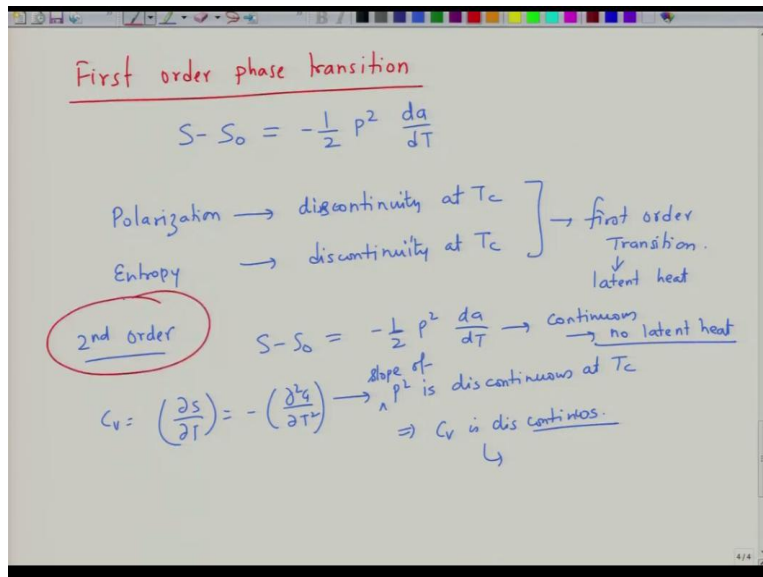 First order phase transition
S- S₀ = -1/2 P² da/dT
Polarization → discontinuity at Tc
Entropy → discontinuity at Tc
→ first order
Transition.
↓
latent heat
2nd order
S-S₀ = -1/2 P² da/dT → continuous
→ no latent heat
Cv = (∂S/∂T) = -(∂²G/∂T²) → slope of P² is discontinuous at Tc
⇒ Cv is discontinos.
↳
4/4